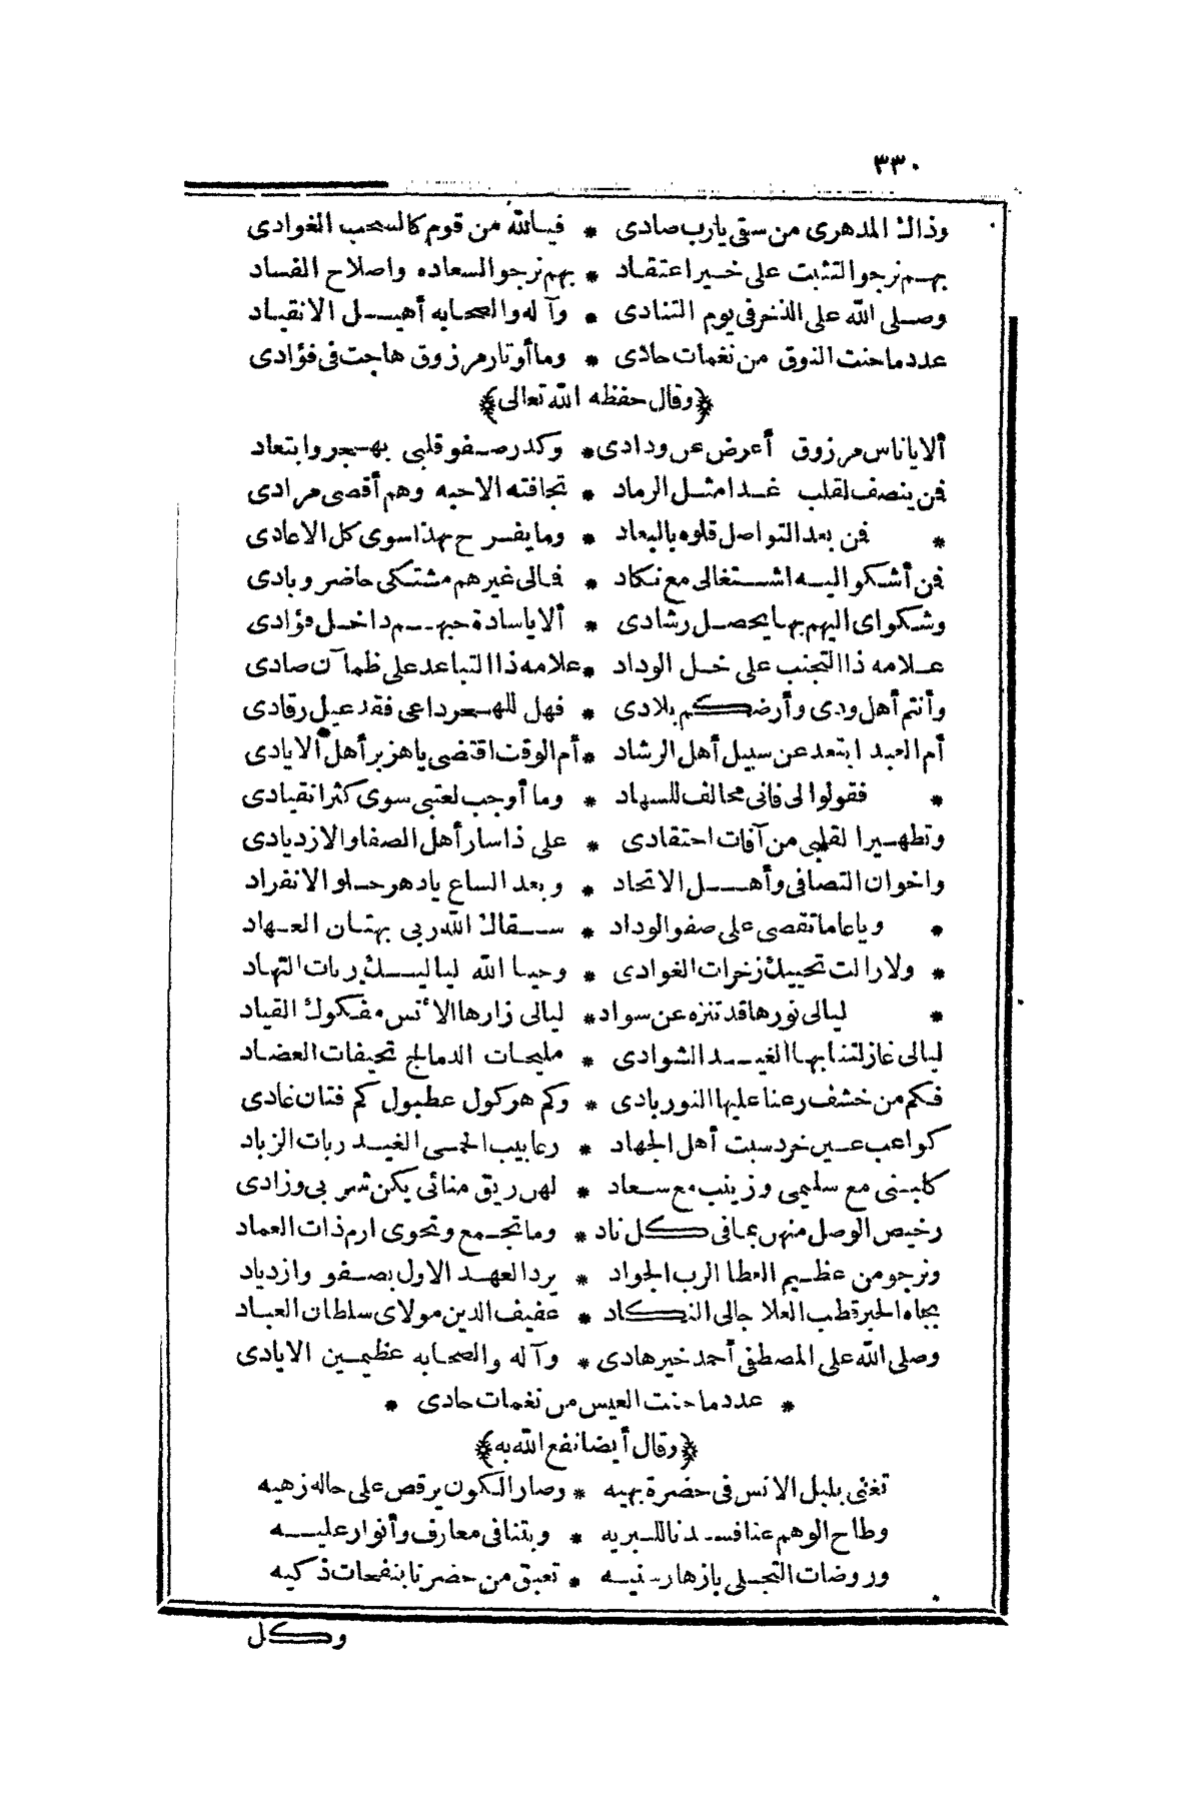 ٣٣٠
وذاك المدهرى من سقى يارب صادى * فيالله من قوم كالسحب الغوادى
بهم نرجو التثبت على خير اعتقاد * بهم نرجو السعاده واصلاح الفساد
وصلى الله على الذخر فى يوم التنادى * وآله والصحابه أهيل الانقياد
عدد ما حنت النوق من نغمات حادى * وما أوتار مرزوق هاجت فى فؤادى
﴿وقال حفظه الله تعالى﴾
ألا يا ناس مرزوق أعرض عن ودادى * وكدر صفو قلبى بهجر وابتعاد
فمن ينصف لقلب غدا مثل الرماد * تجافته الاحبه وهم أقصى مرادى
* فمن بعد التواصل قلوه بالبعاد * وما يفرح بهذا سوى كل الاعادى
فمن أشكو اليه اشتغالى مع نكاد * فمالى غيرهم مشتكى حاضر وبادى
وشكواى اليهم بها يحصل رشادى * ألا ياسادة حبهم داخل فؤادى
علامه ذا التجنب على خل الوداد * علامه ذا التباعد على ظمآن صادى
وأنتم أهل ودى وأرضكم بلادى * فهل للهجر داعى فقد عيل رقادى
أم العبد ابتعد عن سبيل أهل الرشاد * أم الوقت اقتضى ياهزبر أهل الايادى
* فقولوا لى فانى محالف للسهاد * وما أوجب لعتبى سوى كثر انقيادى
وتطهيرا لقلبى من آفات احتقادى * على ذا سار أهل الصفا والازديادى
واخوان التصافى وأهل الاتحاد * وبعد الساع يادهر حلو الانفراد
* وياعاما تقصى على صفو الوداد * سقاك الله ربى بهتان العهاد
* ولا زالت تحييك زخرات الغوادى * وحيا الله لياليك ربات التهاد
* ليالى نورها قد تنزه عن سواد * ليالى زارها الأنس مفكوك القياد
ليالى غازلتنا بها الغيد الشوادى * مليحات الدمالج نحيفات العضاد
فكم من خشف رعنا عليها النور بادى * وكم هركول عطبول كم فتان غادى
كواعب عين خرد سبت أهل الجهاد * رعابيب الحمى الغيد ربات الزباد
كلبنى مع سليمى وزينب مع سعاد * لهن ريق منائى يكن شربى وزادى
رخيص الوصل منهن بما فى كل ناد * وما تجمع وتحوى ارم ذات العماد
ونرجو من عظيم العطا الرب الجواد * يرد العهد الاول بصفو وازدياد
بجاه الحبر قطب العلا جالى النكاد * عفيف الدين مولاى سلطان العباد
وصلى الله على المصطفى أحمد خير هادى * وآله والصحابه عظيمين الايادى
* عدد ما حنت العيس من نغمات حادى *
﴿وقال أيضا نفع الله به﴾
تغنى بلبل الانس فى حضرة بهيه * وصار الكون يرقص على حاله زهيه
وطاح الوهم عنا فسدنا للبريه * وبتنا فى معارف وأنوار عليه
وروضات التجلى بازهار سنيه * تعبق من حضرنا بنفحات ذكيه
وكل